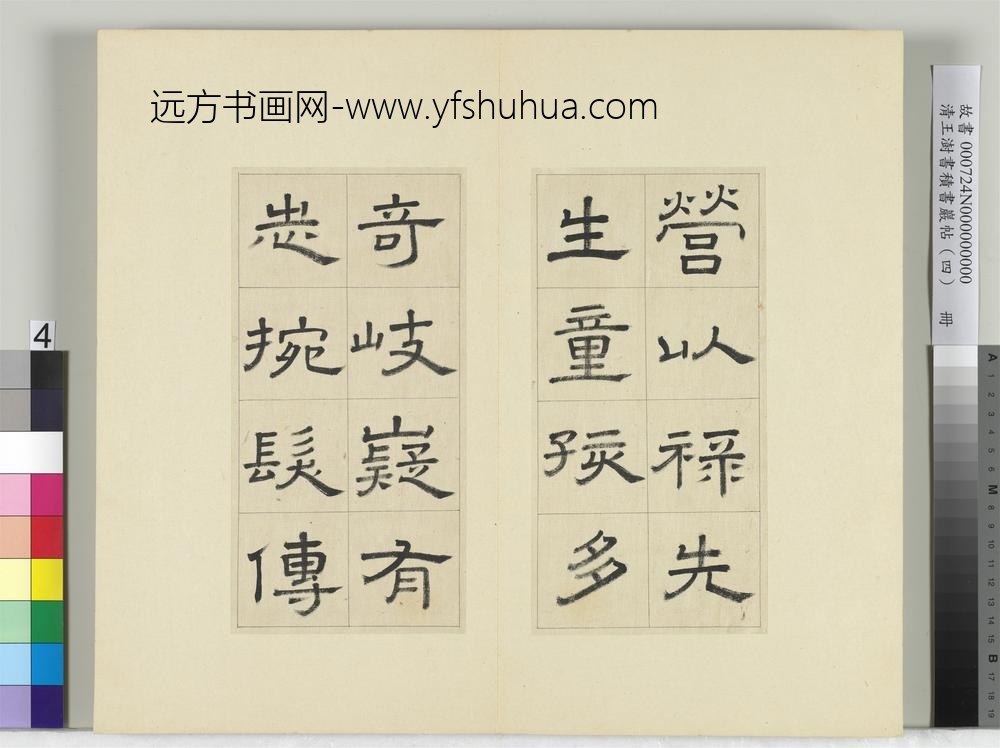 远方书画网-www.yfshuhua.com
故書 000724N000000000
清王澍書積書巖帖（四） 冊
營以祿先
生童孩多
奇岐嶷有
志捥髮傳
4
A 1 2 3 4 5 6 M 8 9 10 11 12 13 14 15 B 17 18 19